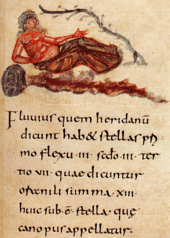 Fluuius quem heridanū
dicunt hab& stellas pri
mo flexu · iii · secđo · iii · ter
tio vii · quae dicuntur
oftenili summa · xiii
huic sub· ē · stella · que
canopus appellatur.